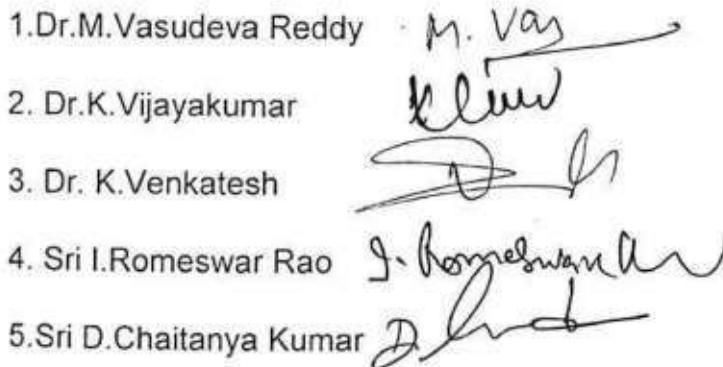 1.Dr.M.Vasudeva Reddy M. Vas
2. Dr.K.Vijayakumar
3. Dr. K.Venkatesh
4. Sri I.Romeswar Rao I. Romeswara
5.Sri D.Chaitanya Kumar D.